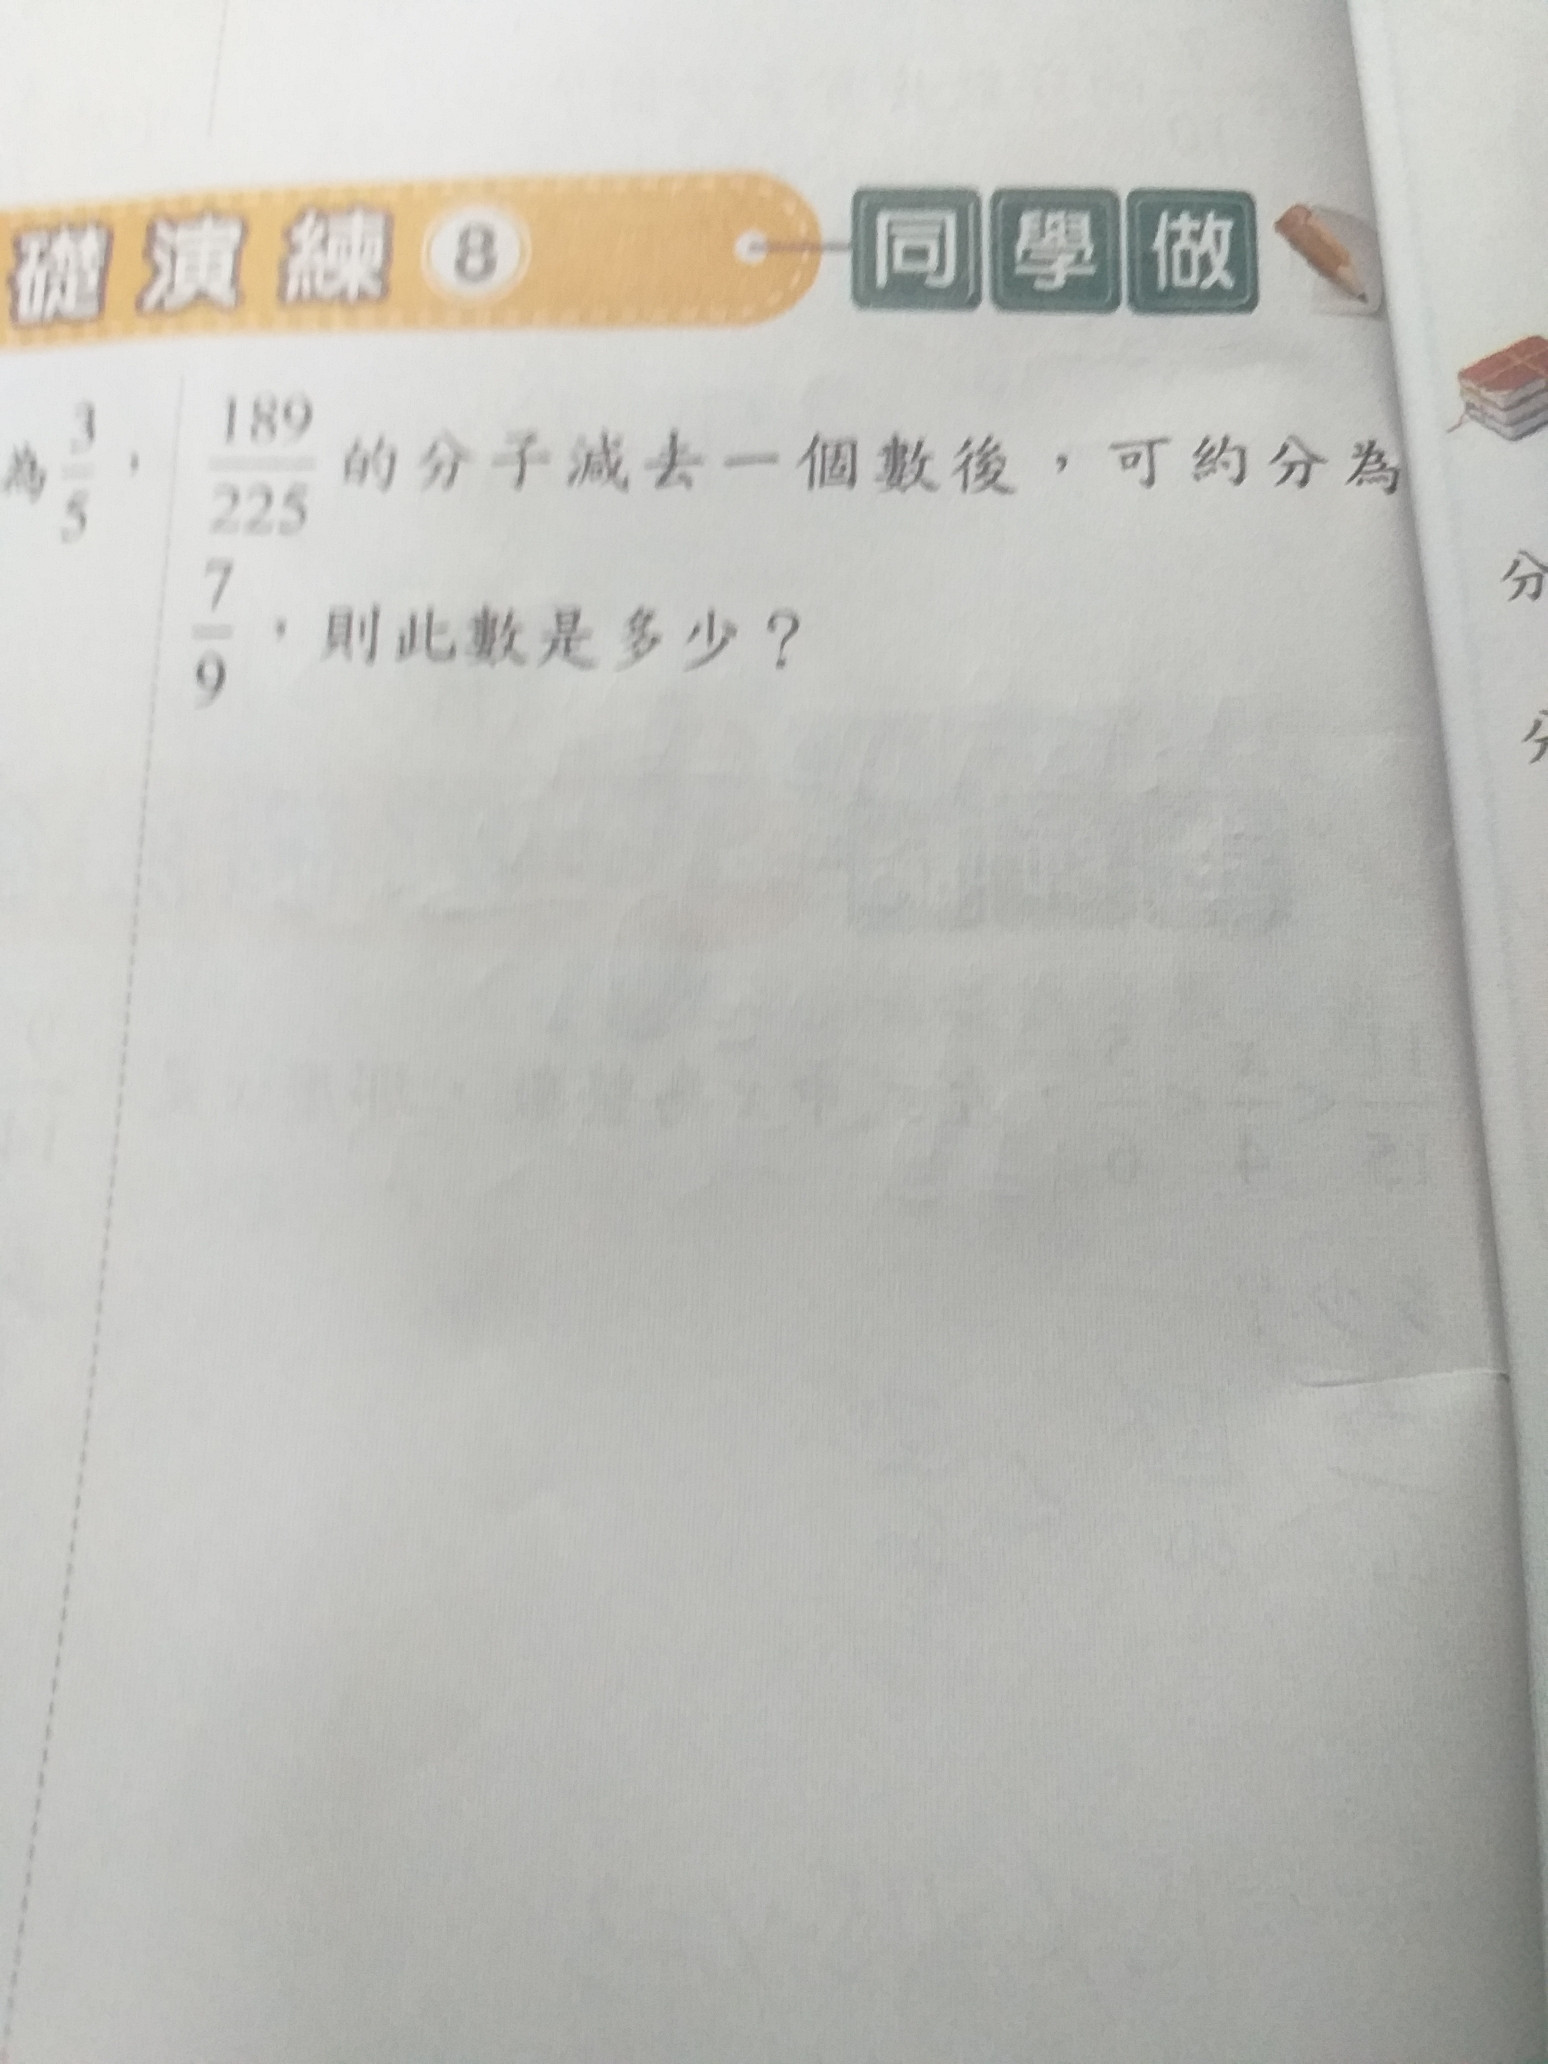 礎演練 8 同學做
為 3/5，
189/225 的分子減去一個數後，可約分為
7/9，則此數是多少？
分